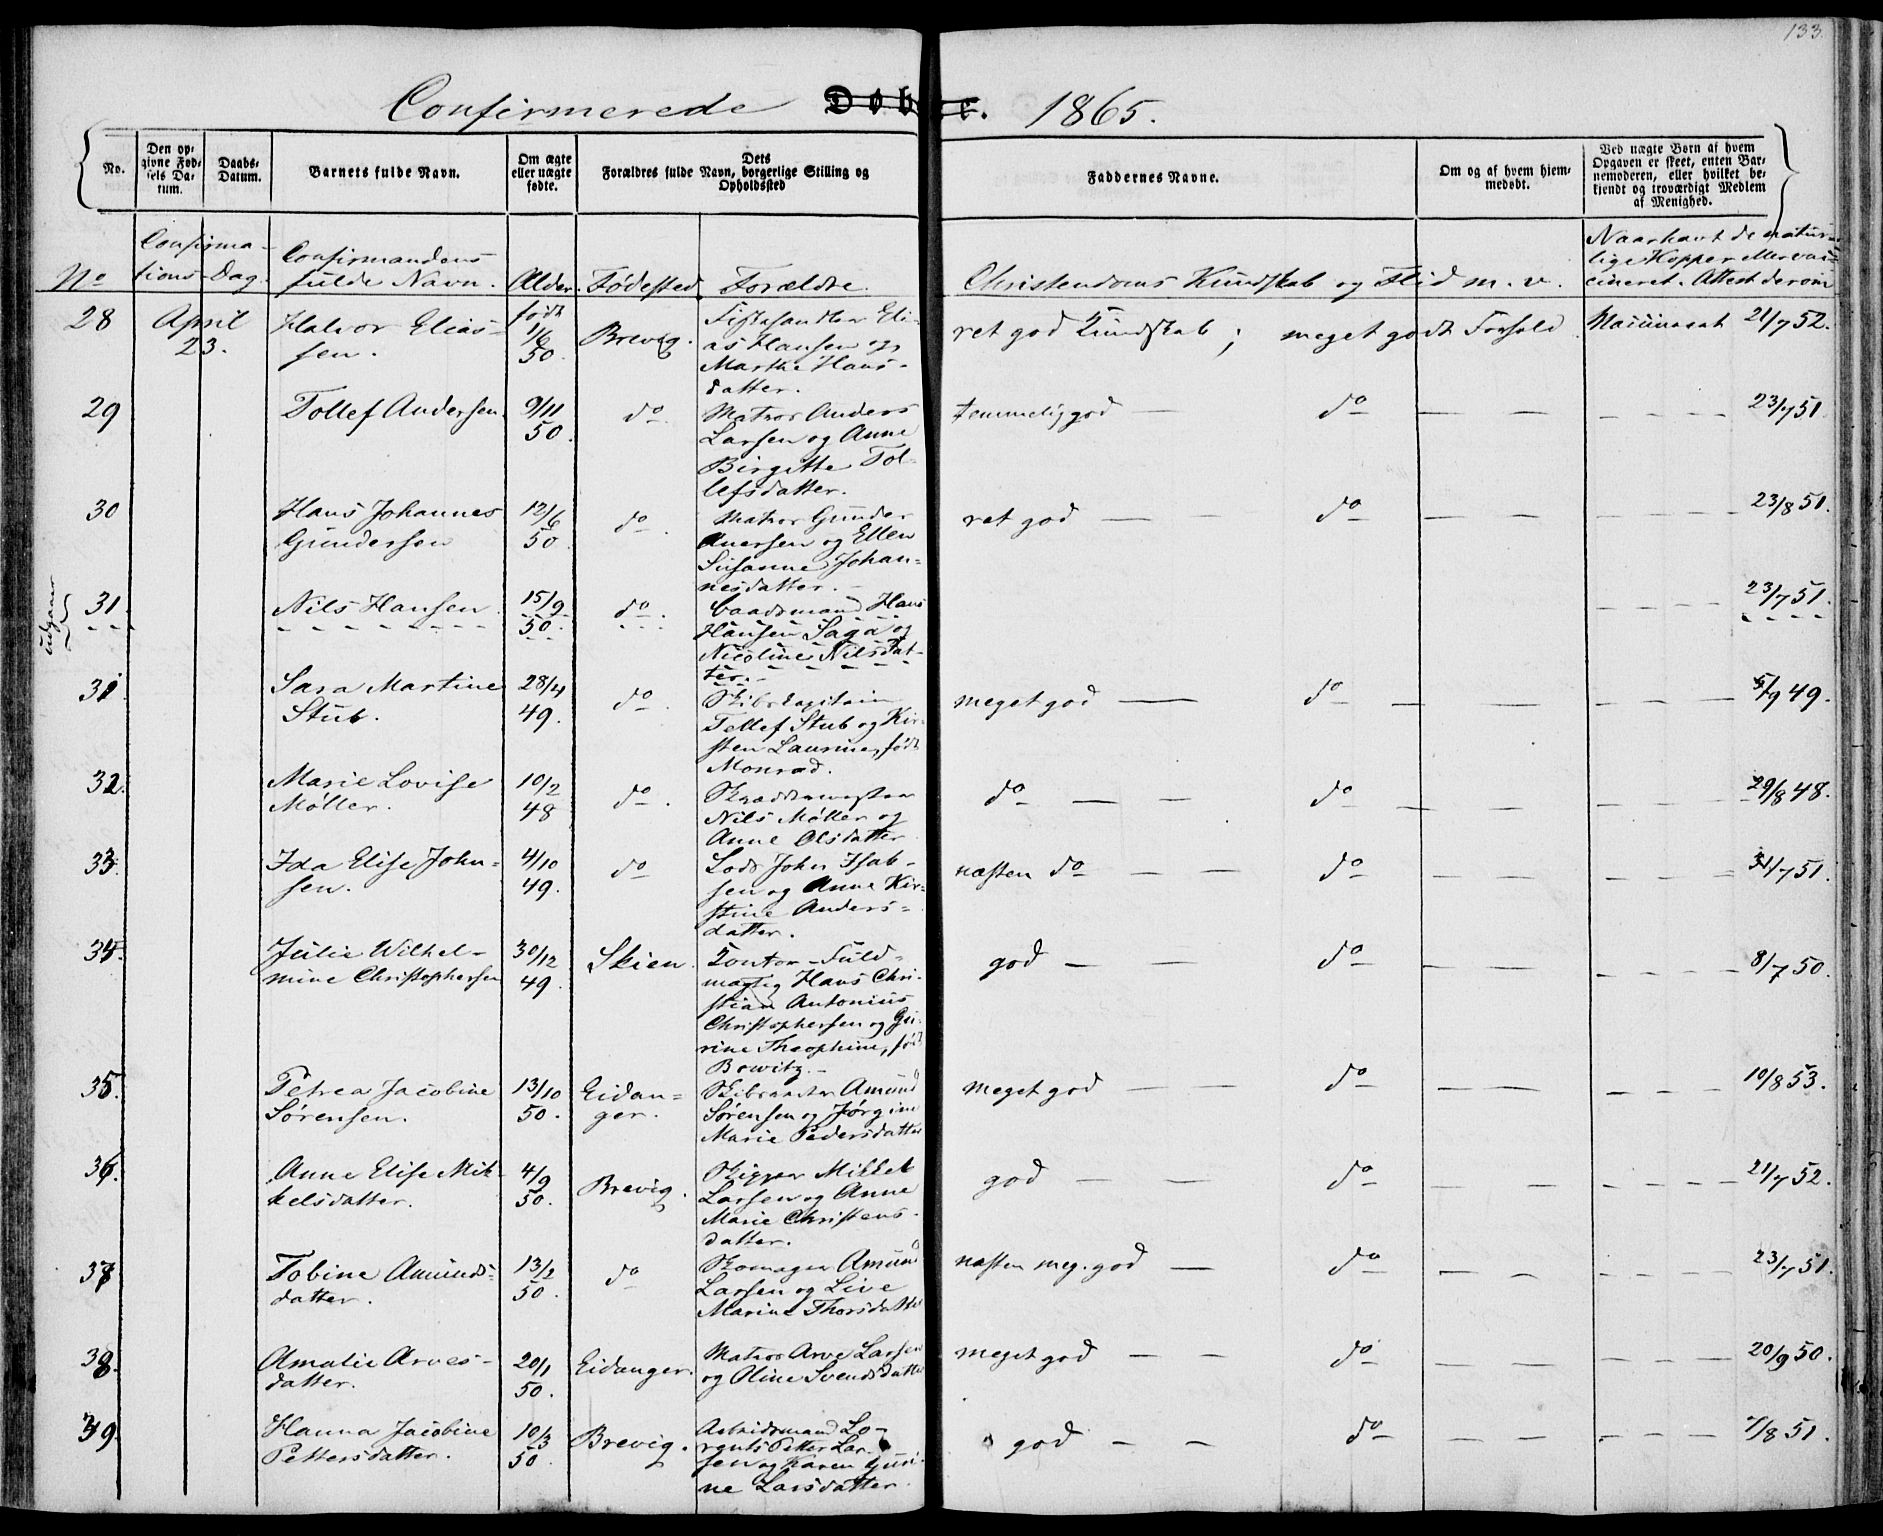 133.
Confirmerede Døbte. 1865.
No. Den opgivne Fødsels Datum. Daabs-Datum. Barnets fulde Navn. Om ægte eller uægte fødte. Dets Forældres fulde Navn, borgerlige Stilling og Opholdssted Faddernes Navne. Om og af hvem hjemmedøbt. Ved uægte Børn af hvem Opgaven er skeet, enten Barnemoderen, eller hvilket bekjendt og troværdigt Medlem af Menighed.
No Confirmations-Dag. Confirmandens fulde Navn. Alder. Fødested. Forældre. Christendoms Kundskab og Flid m. v. Naar havt de naturlige Kopper eller vaccineret. Attest derom
28 April 23. Halvor Eliassen. født 1/6 50. Brevig. Elias Hansen og Marthe Hansdatter. ret god Kundskab; meget godt Forhold 21/7 52.
29 Tollef Andersen. 9/11 50. do Matros Anders Larsen og Anne Birgitte Tollefsdatter. temmelig god — do — — 23/7 51.
30 Hans Johannes Gundersen 12/6 50 do. Matros Gunder Anersen og Ellen Susanne Johannesdatter. ret god — — do — — 23/8 51.
Udgaaer 31. Nils Hansen 15/9 50. do. Baadsmand Hans Hansen Saga og Nicoline Nilsdatter. 23/7 51.
31. Sara Martine Stub. 28/4 49. do. Skibskapitain Tellef Stub og Kirsten Laurine, født Monrad. meget god — do — — 5/9 49.
32. Marie Lovise Møller. 10/2 48 do. Skræddermester Nils Møller og Anne Olsdatter do — — do — — 29/8 48.
33. Ida Elise Johnsen. 4/10 49. do Lods John Isaksen og Anne Kirstine Andersdatter. næsten do — — do — — 31/7 51.
34. Julie Wilhelmine Christophersen 30/12 49. Skien. Contor-Fuldmægtig Hans Christian Antonius Christophersen og Gurine Theophine, født Bowitz. god — — do — — 8/7 50.
35. Petrea Jacobine Sørensen. 13/10 50. Eidanger. Amund Sørensen og Jørgine Marie Pedersdatter meget god — — do — — 10/8 53.
36. Anne Elise Mikkelsdatter. 4/9 50. Brevig. Skipper Mikkel Larsen og Anne Marie Christensdatter. god — — do — — 21/7 52.
37. Tobine Amundsdatter. 13/2 50. do Skomager Amund Larsen og Live Marine Thorsdatter næsten meg. god — do — — 23/7 51.
38. Amalie Arvesdatter. 20/1 50. Eidanger. Matros Arve Larsen og Oline Svendsdatter meget god — — do — — 20/9 50.
39. Hanna Jacobine Pettersdatter. 10/3 50. Brevig. Arbeidsmand Lorents Petter Larsen og Karen Gurine Larsdatter god — — do — — 7/8 51.